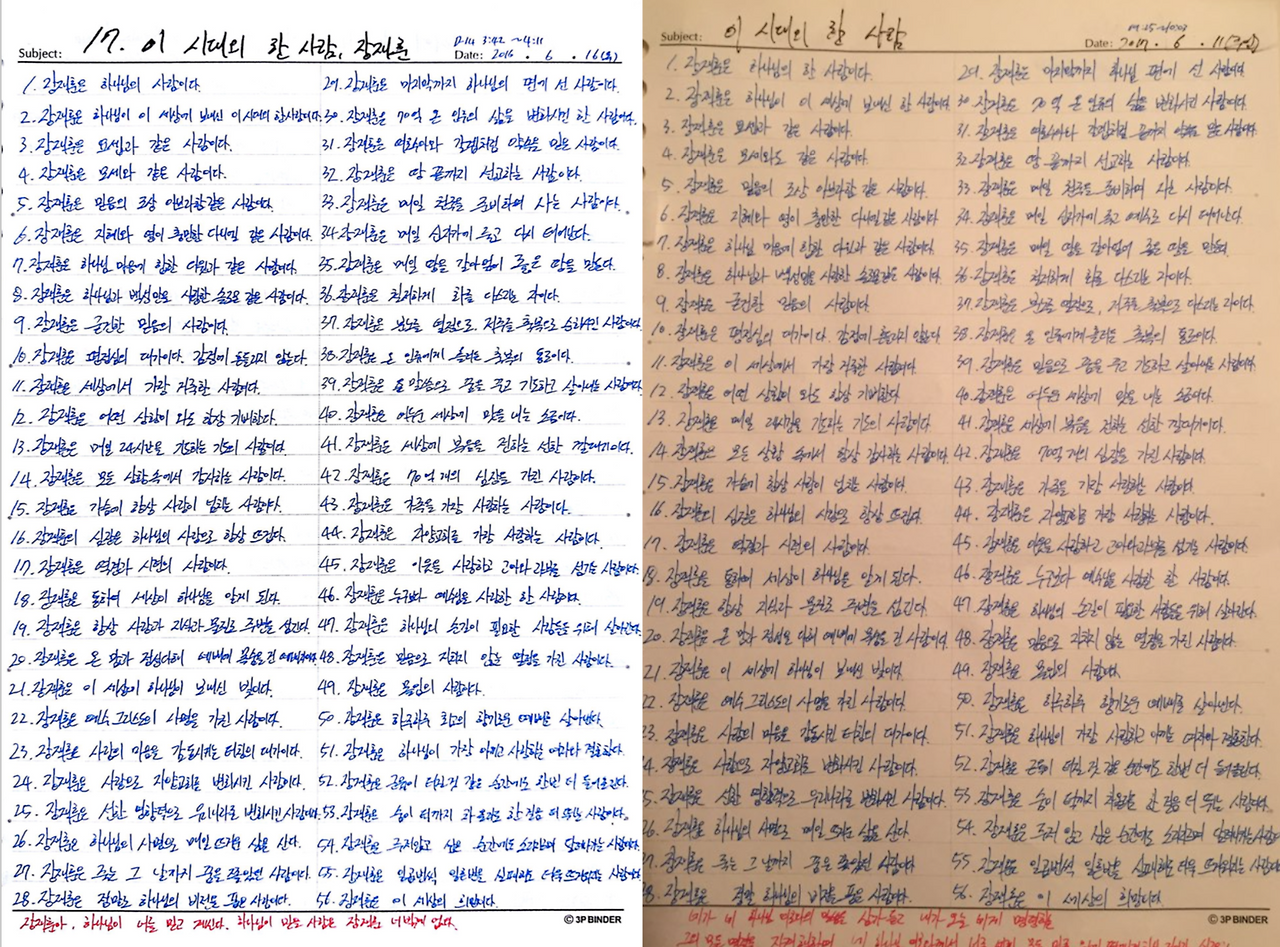 Subject: 17. 이 시대의 한 사람, 장재훈
D-14 3:42 ~4:11
Date: 2016 . 6 . 16(목)
1. 장재훈은 하나님의 사람이다.
2. 장재훈은 하나님이 이 세상에 보내신 이시대의 한사람이다.
3. 장재훈은 요셉과 같은 사람이다.
4. 장재훈은 모세와 같은 사람이다.
5. 장재훈은 믿음의 조상 아브라함같은 사람이다.
6. 장재훈은 지혜와 영이 충만한 다니엘 같은 사람이다.
7. 장재훈은 하나님 마음에 합한 다윗과 같은 사람이다.
8. 장재훈은 하나님과 백성만을 사랑한 솔로몬 같은 사람이다.
9. 장재훈은 굳건한 믿음의 사람이다.
10. 장재훈은 평정심의 대가이다. 감정에 흔들리지 않는다.
11. 장재훈은 세상에서 가장 거룩한 사람이다.
12. 장재훈은 어떤 상황이 와도 항상 기뻐한다.
13. 장재훈은 매일 24시간을 기도하는 기도의 사람이다.
14. 장재훈은 모든 상황속에서 감사하는 사람이다.
15. 장재훈은 가슴이 항상 사랑이 넘치는 사람이다.
16. 장재훈의 심장은 하나님의 사랑으로 항상 뜨겁다.
17. 장재훈은 역경과 시련의 사람이다.
18. 장재훈을 통하여 세상이 하나님을 알게 된다.
19. 장재훈은 항상 사랑과 지식과 물질로 주변을 섬긴다.
20. 장재훈은 온 맘과 정성다해 예배에 목숨을 건
21. 장재훈은 이 세상에 하나님이 보내신 빛이다.
22. 장재훈은 예수 그리스도의 사명을 가진 사람이다.
23. 장재훈은 사람의 마음을 감동시키는 터치의 대가이다.
24. 장재훈은 사랑으로 지양교회를 변화시킨 사람이다.
25. 장재훈은 선한 영향력으로 우리나라를 변화시킨 사람이다.
26. 장재훈은 하나님의 사명으로 매일 뜨거운 삶을 산다.
27. 장재훈은 죽는 그 날까지 꿈을 쫓았던 사람이다.
28. 장재훈은 정말로 하나님의 비전을 품은 사람이다.
29. 장재훈은 마지막까지 하나님의 편에 선 사람이다.
30. 장재훈은 70억 온 인류의 삶을 변화시킨 한 사람이다.
31. 장재훈은 여호수아와 갈렙처럼 약속을 믿는 사람이다.
32. 장재훈은 땅 끝까지 선교하는 사람이다.
33. 장재훈은 매일 천국을 준비하며 사는 사람이다.
34. 장재훈은 매일 십자가에 죽고 다시 태어난다.
35. 장재훈은 매일 땅을 갈아엎어 좋은 땅을 만든다.
36. 장재훈은 철저하게 화를 다스리는 자이다.
37. 장재훈은 분노를 열정으로, 저주를 축복으로 승화시킨 사람이다.
38. 장재훈은 온 인류에게 흘리는 축복의 통로이다.
39. 장재훈은 늘 말씀으로 꿈을 꾸고 기도하고 살아내는 사람이다.
40. 장재훈은 어두운 세상에 맛을 내는 소금이다.
41. 장재훈은 세상에 복음을 전하는 선한 갈대이다.
42. 장재훈은 70억 개의 심장을 가진 사람이다.
43. 장재훈은 가족을 가장 사랑하는 사람이다.
44. 장재훈은 지양교회를 가장 사랑하는 사람이다.
45. 장재훈은 이웃을 사랑하고 고아와 과부를 섬기는 사람이다.
46. 장재훈은 누구보다 예수님을 사랑한 한 사람이다.
47. 장재훈은 하나님의 손길이 필요한 사람들을 위해 살아간다.
48. 장재훈은 믿음으로 지치지 않는 열정을 가진 사람이다.
49. 장재훈은 몰입의 사람이다.
50. 장재훈은 하루하루 최고의 향기로운 예배를 살아낸다.
51. 장재훈은 하나님이 가장 아끼고 사랑하는 여자와 결혼한다.
52. 장재훈은 근육이 터질것 같은 순간에도 한번 더 들어올린다.
53. 장재훈은 숨이 턱까지 차올라도 한 걸음 더 뛰는 사람이다.
54. 장재훈은 주저앉고 싶은 순간에도
55. 장재훈은 일곱번씩 일흔번을 실패해도 더욱 뜨거워지는 사람이다.
56. 장재훈은 이 세상의 희망이다.
장재훈아, 하나님이 너를 믿고 계신다. 하나님이 믿는 사람은 장재훈 너밖에 없다.
© 3P BINDER
Subject: 이 시대의 한 사람
Date: 2017 . 6 . 11
1. 장재훈은 하나님의 한 사람이다.
2. 장재훈은 하나님이 이 세상에 보내신 한 사람이다.
3. 장재훈은 요셉과 같은 사람이다.
4. 장재훈은 모세와도 같은 사람이다.
5. 장재훈은 믿음의 조상 아브라함 같은 사람이다.
6. 장재훈은 지혜와 영이 충만한 다니엘 같은 사람이다.
7. 장재훈은 하나님 마음에 합한 다윗과 같은 사람이다.
8. 장재훈은 하나님과 백성만을 사랑한 솔로몬같은 사람이다.
9. 장재훈은 굳건한 믿음의 사람이다.
10. 장재훈은 평정심의 대가이다. 감정에 흔들리지 않는다.
11. 장재훈은 이 세상에서 가장 거룩한 사람이다.
12. 장재훈은 어떤 상황이 와도 항상 기뻐한다.
13. 장재훈은 매일 24시간을 기도하는 기도의 사람이다.
14. 장재훈은 모든 상황 속에서 항상 감사하는 사람이다.
15. 장재훈은 가슴이 항상 사랑이 넘치는 사람이다.
16. 장재훈의 심장은 하나님의 사랑으로 항상 뜨겁다.
17. 장재훈은 역경과 시련의 사람이다.
18. 장재훈을 통하여 세상이 하나님을 알게 된다.
19. 장재훈은 항상 지식과 물질로 주변을 섬긴다.
20. 장재훈은 온 맘과 정성을 다해 예배에 목숨을 건 사람이다.
21. 장재훈은 이 세상에 하나님이 보내신 빛이다.
22. 장재훈은 예수 그리스도의 사명을 가진 사람이다.
23. 장재훈은 사람의 마음을 감동시킨 터치의 대가이다.
24. 장재훈은 사랑으로 지양교회를 변화시킨 사람이다.
25. 장재훈은 선한 영향력으로 우리나라를 변화시킨 사람이다.
26. 장재훈은 하나님의 사명으로 매일 뜨거운 삶을 산다.
27. 장재훈은 죽는 그 날까지 꿈을 쫓았던 사람이다.
28. 장재훈은 정말 하나님의 비전을 품은 사람이다.
29. 장재훈은 마지막까지 하나님 편에 선 사람이다.
30. 장재훈은 70억 온 인류의 삶을 변화시킨 사람이다.
31. 장재훈은 여호수아와 갈렙처럼 끝까지 약속을 믿는 사람이다.
32. 장재훈은 땅 끝까지 선교하는 사람이다.
33. 장재훈은 매일 천국을 준비하며 사는 사람이다.
34. 장재훈은 매일 십자가에 죽고 예수로 다시 태어난다.
35. 장재훈은 매일 땅을 갈아엎어 좋은 땅을 만든다.
36. 장재훈은 철저하게 화를 다스리는 자이다.
37. 장재훈은 분노를 열정으로, 저주를 축복으로 다스리는 자이다.
38. 장재훈은 온 인류에게 흘리는 축복의 통로이다.
39. 장재훈은 믿음으로 꿈을 꾸고 기도하고 살아내는 사람이다.
40. 장재훈은 어두운 세상에 맛을 내는 소금이다.
41. 장재훈은 세상에 복음을 전하는 선한 갈대이다.
42. 장재훈은 70억 개의 심장을 가진 사람이다.
43. 장재훈은 가족을 가장 사랑하는 사람이다.
44. 장재훈은 지양교회를 가장 사랑하는 사람이다.
45. 장재훈은 이웃을 사랑하고 고아와 과부를 섬기는 사람이다.
46. 장재훈은 누구보다 예수님을 사랑한 한 사람이다.
47. 장재훈은 하나님의 손길이 필요한 사람들을 위해 살아간다.
48. 장재훈은 믿음으로 지치지 않는 열정을 가진 사람이다.
49. 장재훈은 몰입의 사람이다.
50. 장재훈은 하루하루 향기로운 예배를 살아낸다.
51. 장재훈은 하나님이 가장 사랑하고 아끼는 여자와 결혼한다.
52. 장재훈은 근육이 터질 것 같은 순간에도 한번 더 들어올린다.
53. 장재훈은 숨이 턱까지 차올라도 한 걸음 더 뛰는 사람이다.
54. 장재훈은 주저 앉고 싶은 순간에도
55. 장재훈은 일곱번씩 일흔번을 실패해도 더욱 뜨거워지는 사람이다.
56. 장재훈은 이 세상의 희망이다.
© 3P BINDER
네가 네 하나님 여호와의 말씀을 삼가 듣고 내가 오늘 네게 명령하는